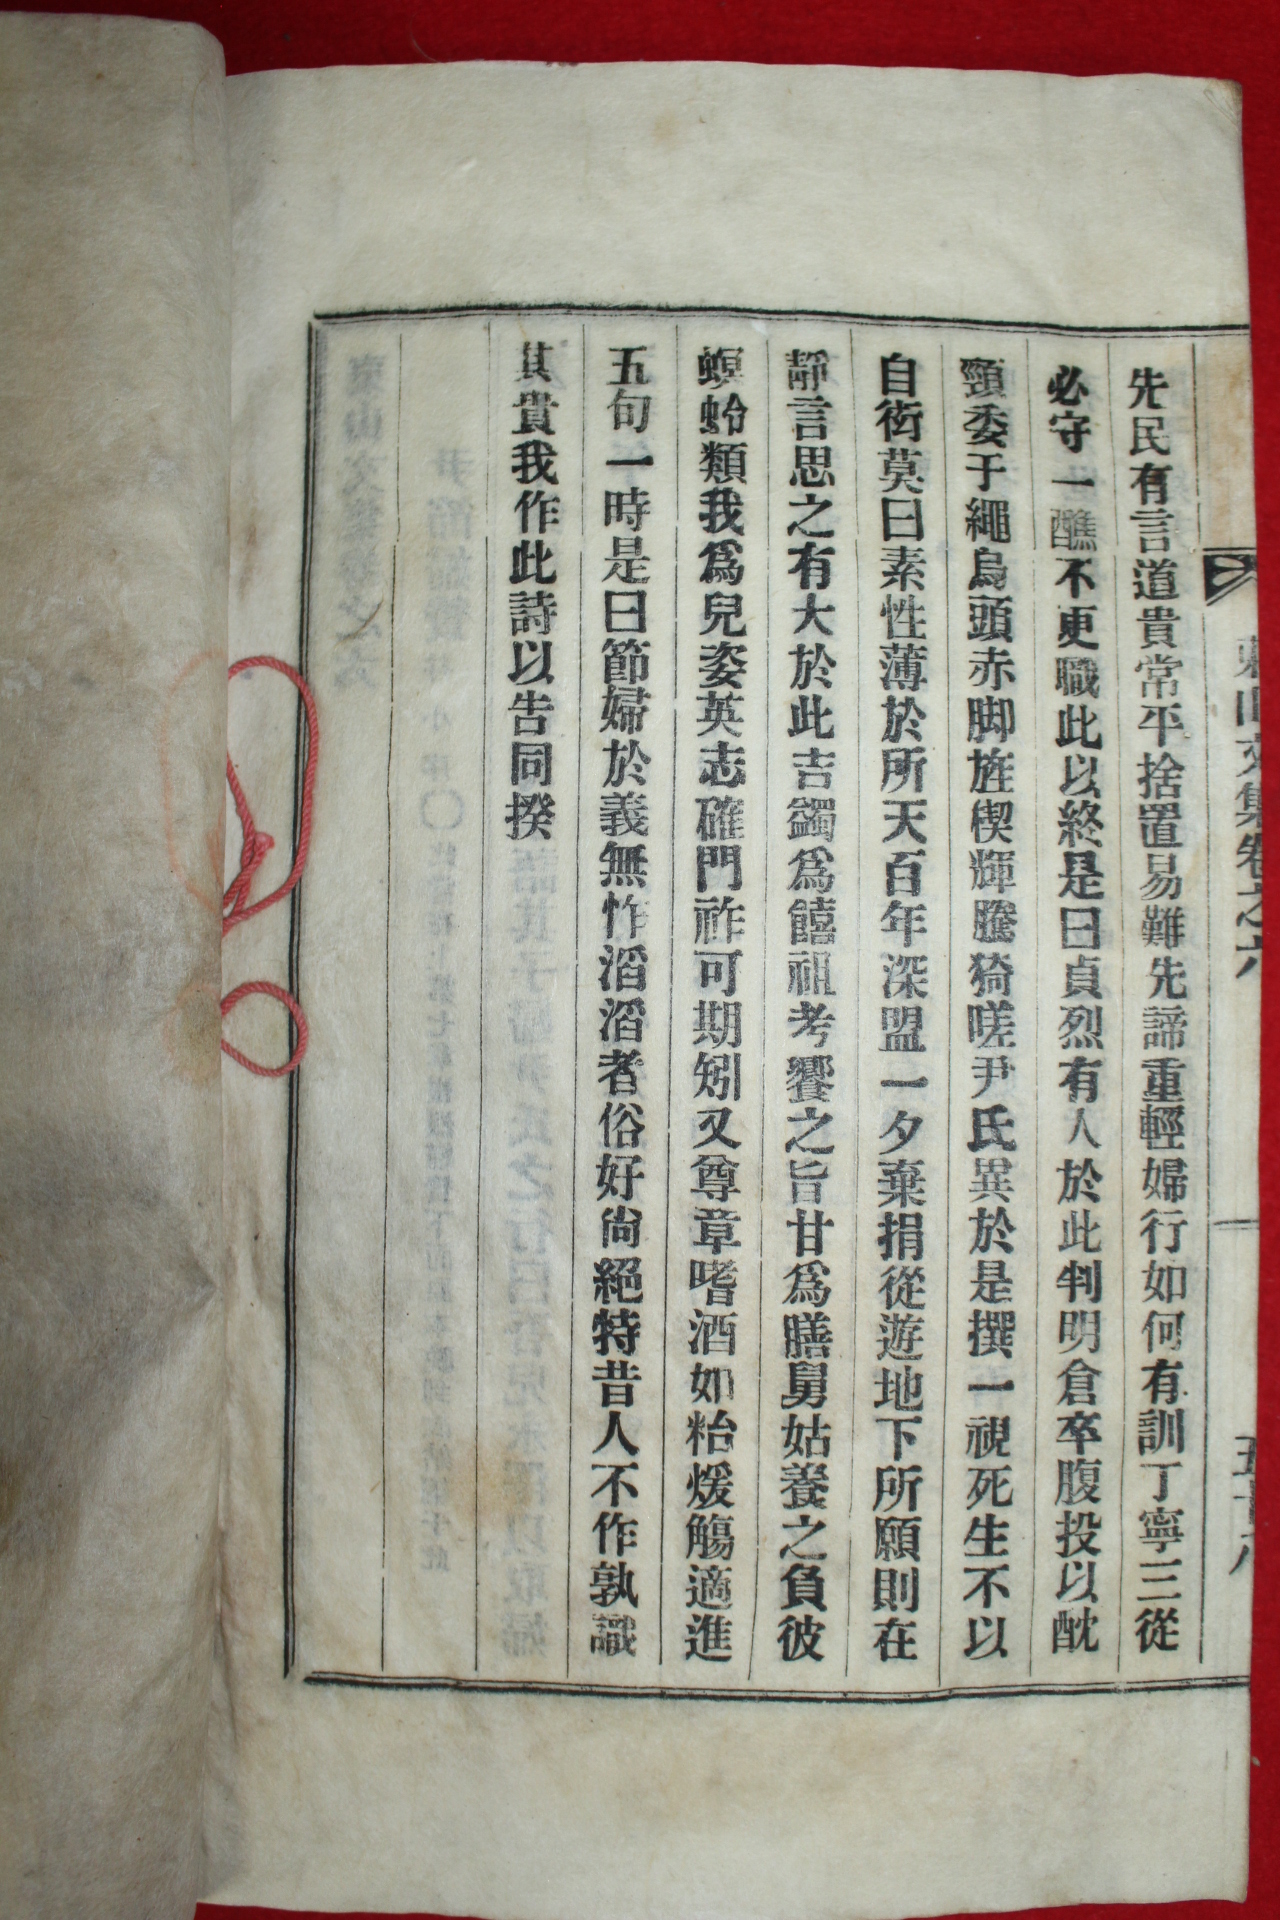 先民有言道貴常平捨置易難先諦重輕婦行如何有訓丁寧三從
必守一醮不更職此以終是曰貞烈有人於此判明倉卒腹投以酖
頸委于繩烏頭赤脚旌楔輝騰猗嗟尹氏異於是撰一視死生不以
自衒莫曰素性薄於所天百年深盟一夕棄捐從遊地下所願則在
靜言思之有大於此吉蠲爲饎祖考饗之旨甘爲膳舅姑養之負彼
螟蛉類我爲兒姿英志確門祚可期矧又尊章嗜酒如飴煖觴適進
五旬一時是曰節婦於義無怍滔滔者俗好尙絕特昔人不作孰識
其貴我作此詩以告同揆
東山文集卷之六